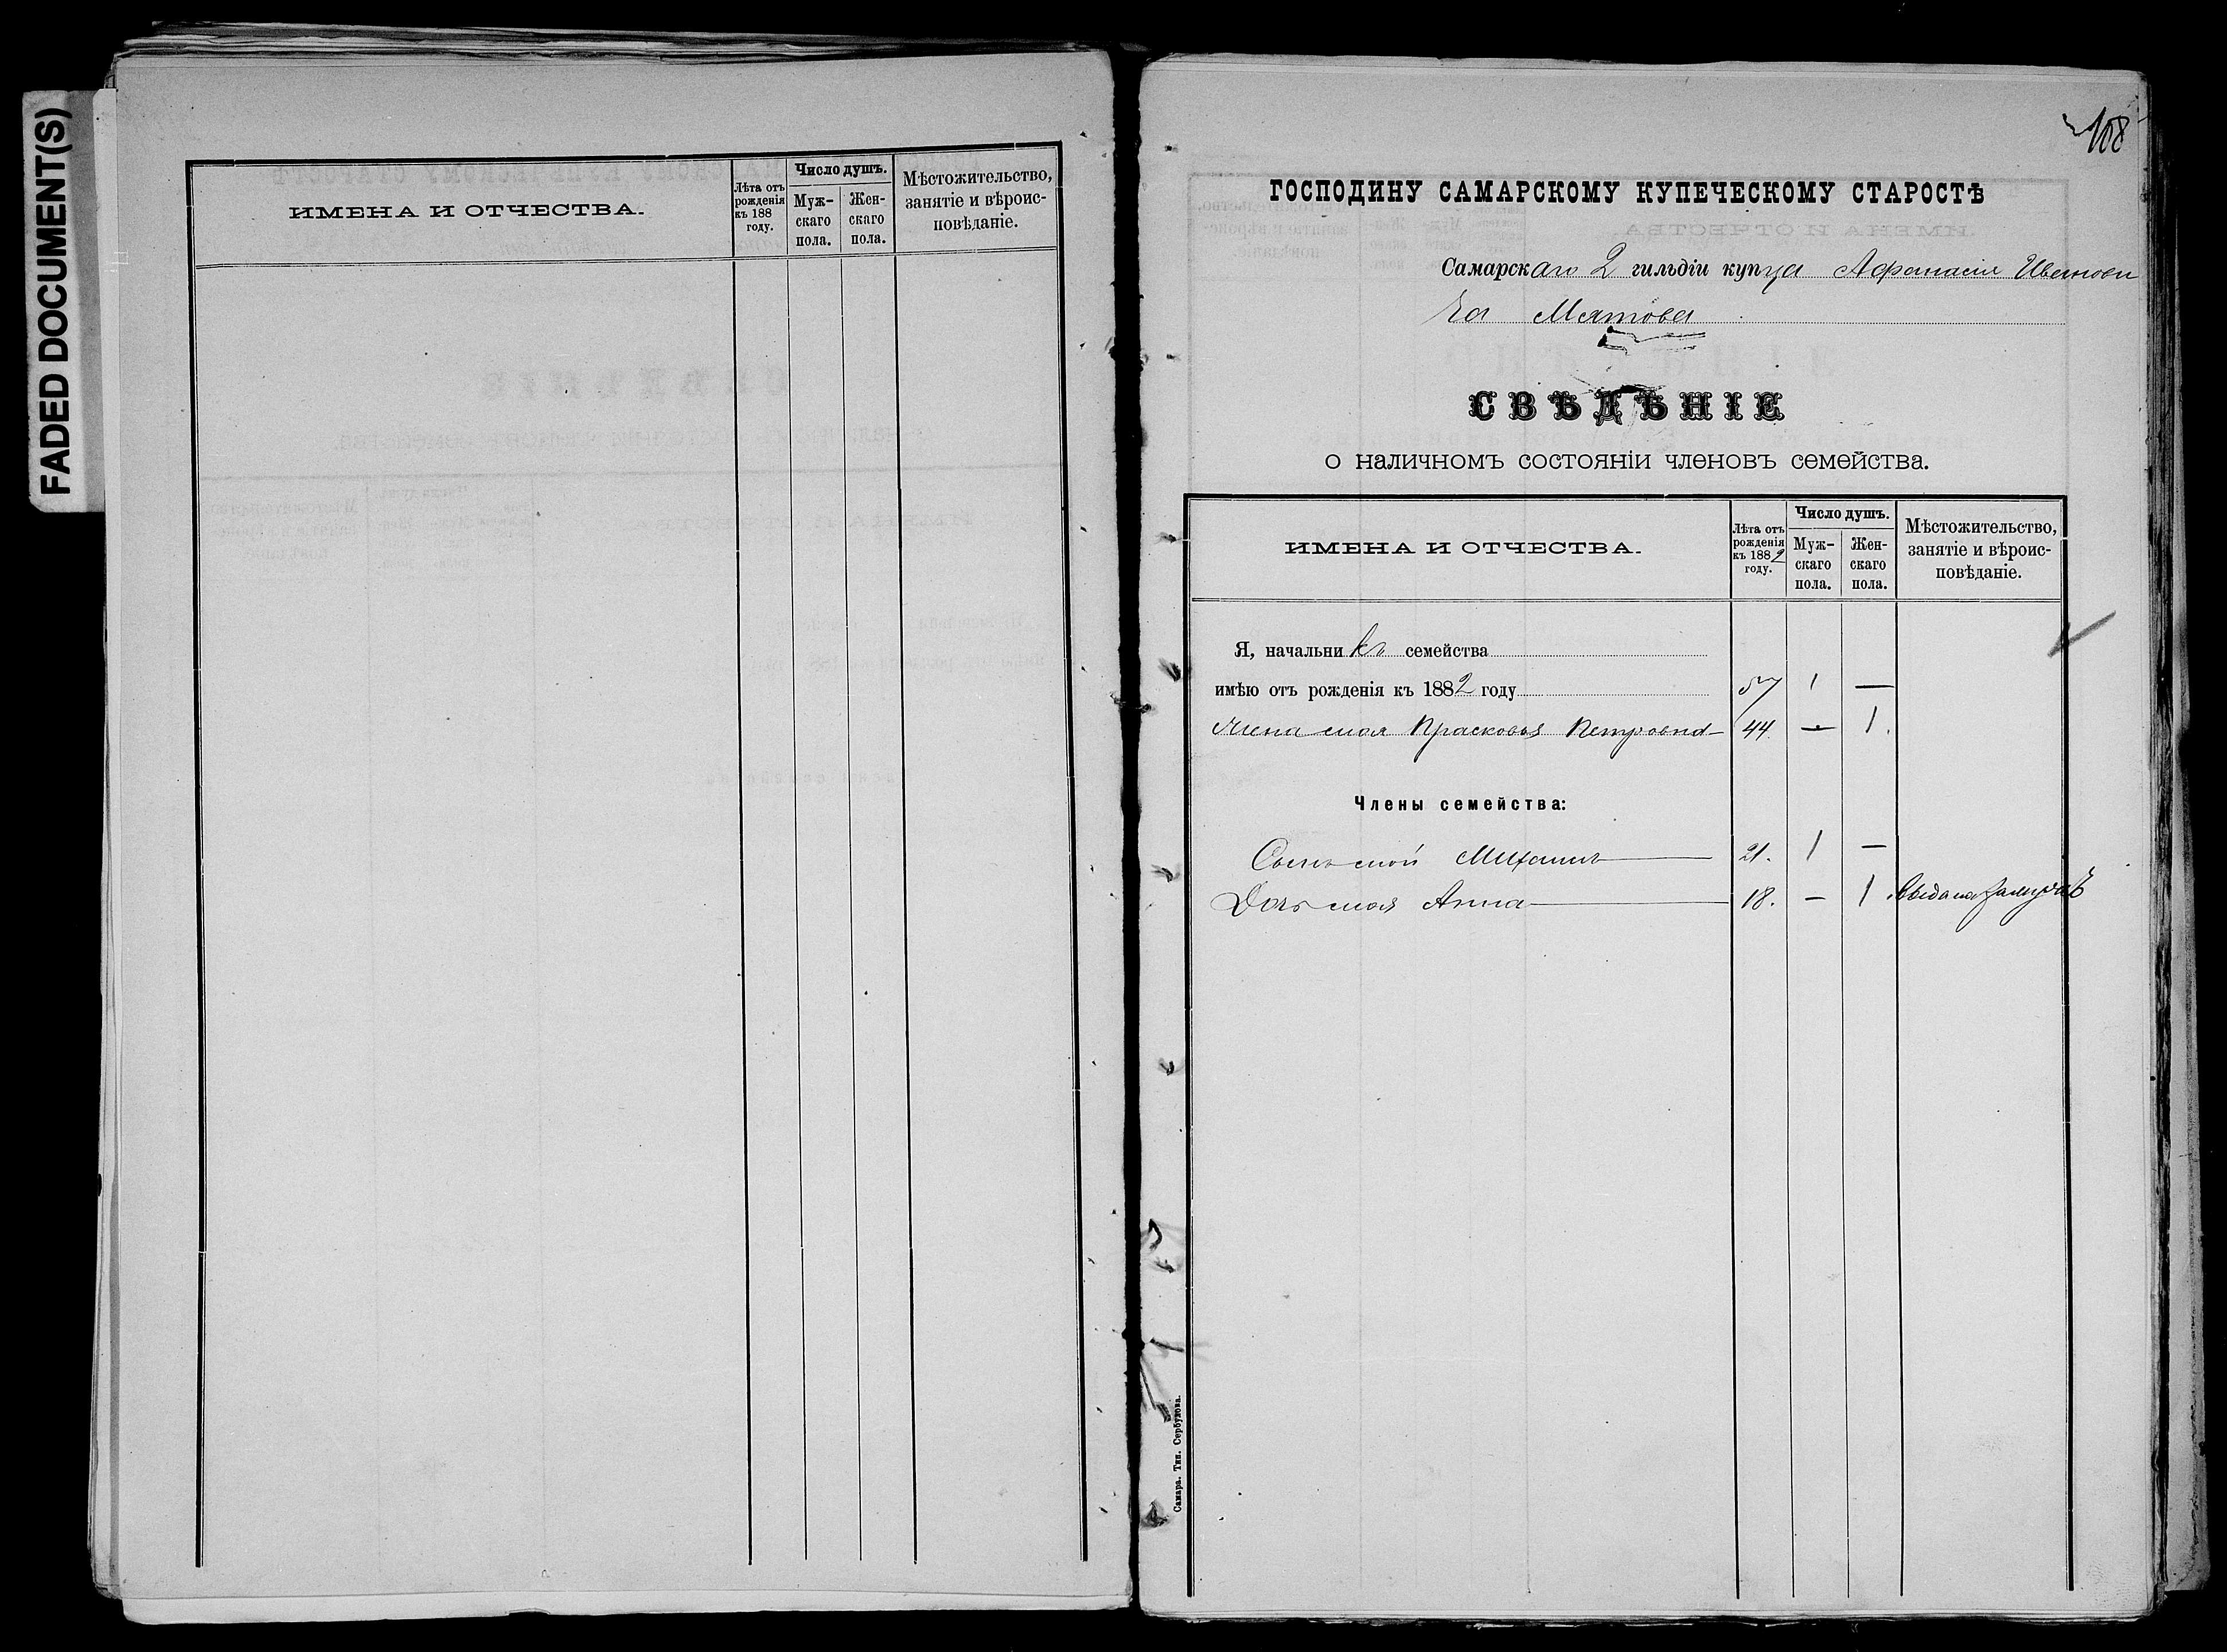 FADED DOCUMENT(S)
ИМЕНА И ОТЧЕСТВА.
Лѣта отъ
рожденія
къ 188
году.
Число душъ.
Муж-
скаго
пола.
Жен-
скаго
пола.
Мѣстожительство,
занятіе и вѣроис-
повѣданіе.
108
ГОСПОДИНУ САМАРСКОМУ КУПЕЧЕСКОМУ СТАРОСТѢ
Самарскаго 2 гильдіи купца Афанасія Иванови
ча Мятова
СВѢДѢНІЕ
о наличномъ состояніи членовъ семейства.
ИМЕНА И ОТЧЕСТВА.
Лѣта отъ
рожденія
къ 1882
году.
Число душъ.
Муж-
скаго
пола.
Жен-
скаго
пола.
Мѣстожительство,
занятіе и вѣроис-
повѣданіе.
Я, начальникъ семейства
имѣю отъ рожденія къ 1882 году 57 1 —
Жена моя Прасковья Петровна 44. — 1.
Члены семейства:
Сынъ мой Михаилъ 21. 1 —
Дочь моя Анна 18. — 1 выдана замужъ
Самара. Тип. Сербулова.